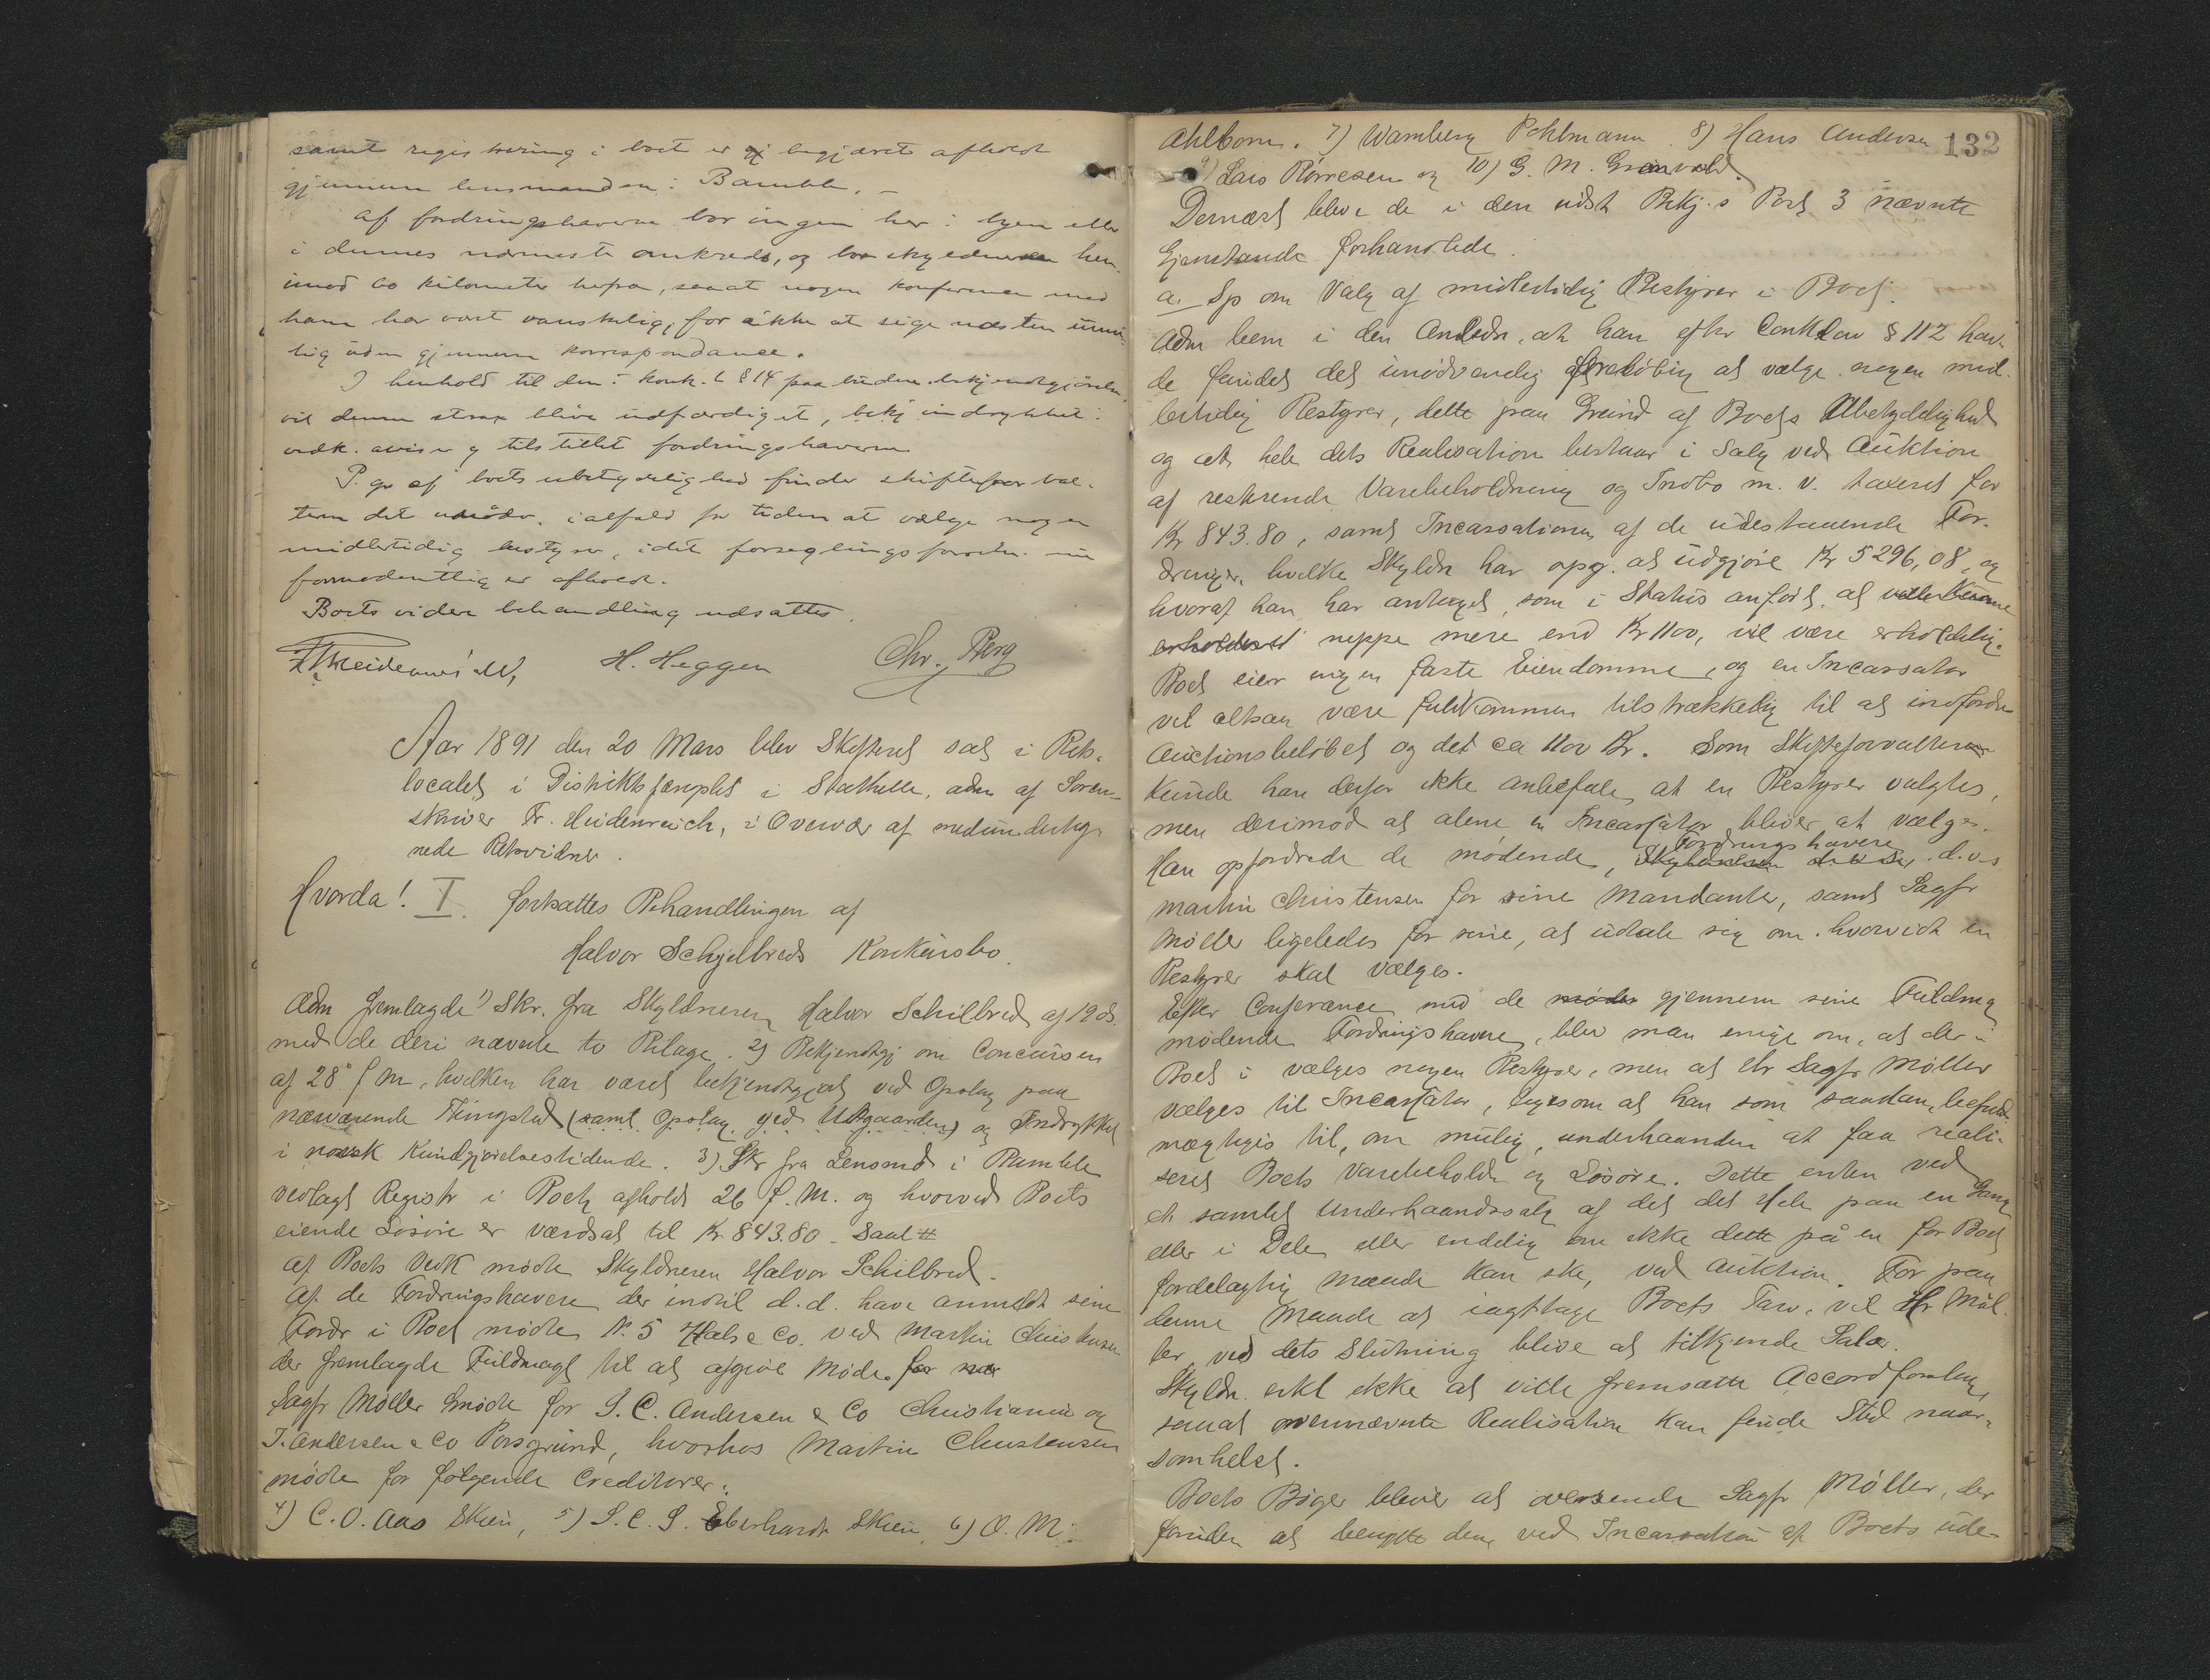 samt registrering i boet er begjæret afholdt
gjennem lensmanden i Bamble. –
Af fordringshaverne bor ingen her i byen eller
i dennes nærmeste omkreds, og bor skyldneren hen-
imod 60 kilometer herfra, saaat nogen konferance med
ham har vært vanskelig, for ikke at sige næsten umu-
lig uden gjennem korrespondance.
I henhold til den i konk. l § 14 paabudne bekjendtgjörelse,
vil denne strax blive udfærdiget, bekj indrykket i
vedk. aviser og tilstillet fordringshaverne
P. gr af boets ubetydelighed finder skifteforval-
teren det unödv. ialfald for tiden at vælge nogen
midlertidig bestyrer, idet forseglingsforretn. nu
formodentlig er afholdt.
Boets videre behandling udsattes.
H. Heggen Chr. Berg
Aar 1891 den 20 Mars blev Skifteret sat i Rets-
localet i Distriktsfængslet i Stathelle, adm af Soren-
skriver Fr. Heidenreich, i Overvær af medunderteg-
nede Retsvidner.
Hvorda! I. fortsattes Behandlingen af
Halvor Schjelbreds Konkursbo.
Adm fremlagde 1) Skr. fra Skyldneren Halvor Schilbred af 19 ds.
med de deri nævnte to Bilage. 2) Bekjendtgj om Concursen
af 28 f M, hvilken har været bekjendtgjort ved Opslag paa
nærværende Thingsted (samt Opslag ved Udgaarden) og Indrykket
i norsk Kundgjörelsestidende. 3) Skr fra Lensmd i Bamble
vedlagt Registr i Boet afholdt 26 f. M. og hvorved Boets
eiende Lösöre er værdsat til Kr 843.80. Saal #
Af Boets Vedk mödte Skyldneren Halvor Schilbred.
Af de Fordringshavere der indtil d.d. have anmeldt sine
Fordr i Boet mödte N. 5 Hals & Co. ved Martin Christensen
der fremlagde Fuldmagt til at afgive Möde. for
Sagfr Møller mödte for J. C. Andersen & Co Christiania og
J. Andersen & Co Porsgrund, hvorhos Martin Christensen
mödte for fölgende Creditorer:
4) C. O. Aas Skien, 5) J. C. S. Eberhardt Skien, 6) O. M.
132
Ahlborn. 7) Wamberg Pohlmann. 8) Hans Andersen
9) Lars Rörresen og 10) G. M. Granvold.
Dernæst bleve de i den udst Bekj.s Post 3 nævnte
Gjenstande forhandlede.
a. Sp om Valg af midlertidig Bestyrer i Boet.
Adm bem i den Anledn, at han efter Conklov § 112 hav-
de fundet det unödvendig foreløbig at vælge nogen mid-
lertidig Bestyrer, dette paa Grund af Boets Ubetydelighed
og at hele dets Realisation bestaar i Salg ved Auktion
af resterende Varebeholdning og Indbo m. v. taxeret for
Kr 843.80, samt Incassationen af de udestaaende For-
dringer, hvilke Skyldn har opg. at udgjöre Kr 5296,08, og
hvoraf han har antaget, som i Status anfört, at ville kunne
erholdes neppe mere end Kr 1100, vil være erholdelig.
Boet eier ingen faste Eiendomme, og en Incassator
vil altsaa være fuldkommen tilstrækkelig til at indfordre
Auctionsbelöbet og det ca 1100 Kr. Som Skifteforvalter
kunde han derfor ikke anbefale, at en Bestyrer valgtes,
men derimod at alene en Incassator bliver at vælge.
Han opfordrede de mödende, Fordringshavere d.v.s
Martin Christensen for sine Mandanter, samt Sagfr
Möller ligeledes for sine, at udtale sig om hvorvidt en
Bestyrer skal vælges.
Efter Conferance med de gjennem sine Fuldmg
mödende Fordringshavere, blev man enige om, at der i
Boet i vælges nogen Bestyrer, men at Hr Sagfr Möller
vælges til Incassator, ligesom at han som saadan befuld-
mægtiges til, om mulig, underhaanden at faa reali-
seret Boets Varebeholdn og Lösöre. Dette enten ved
et samlet Underhaandssalg af det det Hele paa en Gang
eller i Dele eller endelig om ikke dette på en for Boet
fordelagtig Maade kan ske, ved Auktion. For paa
denne Maade at iagttage Boets Tarv, vil Hr Möl-
ler ved dets Slutning blive at tilkjende Salær.
Skyldn. erkl ikke at ville fremsætte Accordforslag,
saaat ovennævnte Realisation kan finde Sted naar-
somhelst.
Boets Böger bliver at oversende Sagfr Möller, der
foruden at benytte dem ved Incassation af Boets ude-